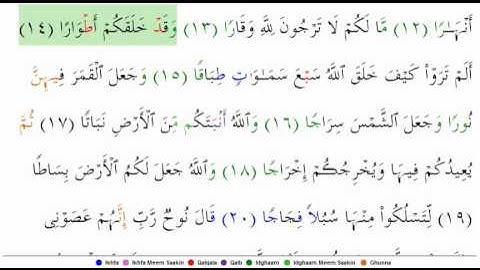 أَنْهَـٰرًا ﴿١٢﴾ مَّا لَكُمْ لَا تَرْجُونَ لِلَّهِ وَقَارًا ﴿١٣﴾ وَقَدْ خَلَقَكُمْ أَطْوَارًا ﴿١٤﴾
أَلَمْ تَرَوْا۟ كَيْفَ خَلَقَ ٱللَّهُ سَبْعَ سَمَـٰوَٰتٍ طِبَاقًا ﴿١٥﴾ وَجَعَلَ ٱلْقَمَرَ فِيهِنَّ
نُورًا وَجَعَلَ ٱلشَّمْسَ سِرَاجًا ﴿١٦﴾ وَٱللَّهُ أَنۢبَتَكُم مِّنَ ٱلْأَرْضِ نَبَاتًا ﴿١٧﴾ ثُمَّ
يُعِيدُكُمْ فِيهَا وَيُخْرِجُكُمْ إِخْرَاجًا ﴿١٨﴾ وَٱللَّهُ جَعَلَ لَكُمُ ٱلْأَرْضَ بِسَاطًا
﴿١٩﴾ لِّتَسْلُكُوا۟ مِنْهَا سُبُلًا فِجَاجًا ﴿٢٠﴾ قَالَ نُوحٌ رَّبِّ إِنَّهُمْ عَصَوْنِى
Ikhfa Ikhfa Meem Saakin Qalqala Qalb Idghaam Idghaam Meem Saakin Ghunna